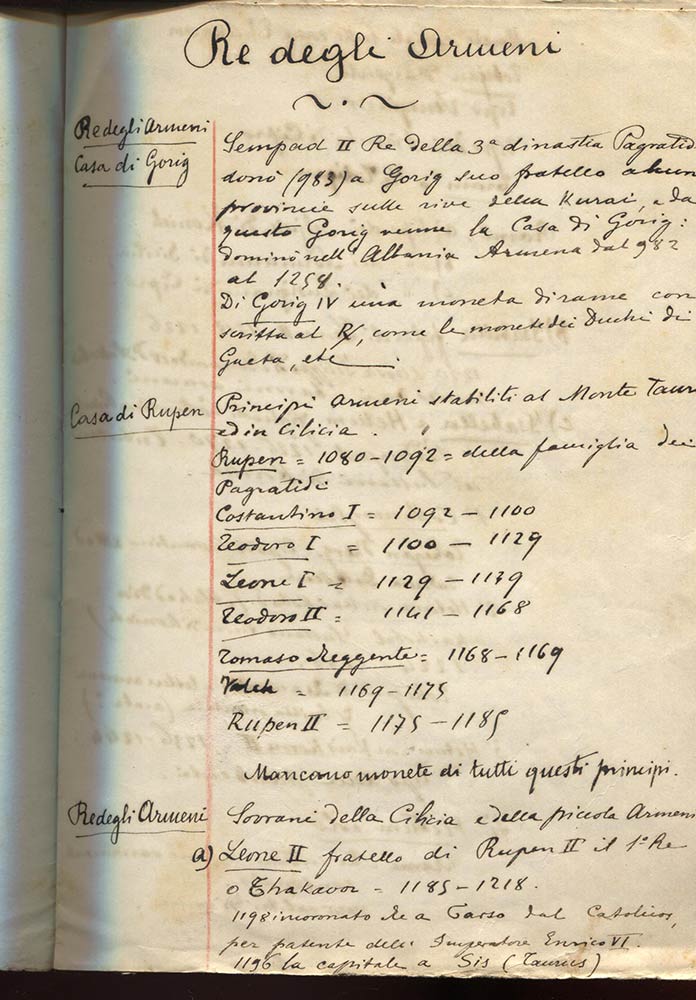 Re degli Armeni
Re degli Armeni
Casa di Gorig
Sempad II Re della 3ª dinastia Pagratid
donò (983) a Gorig suo fratello alcun
provincie sulle rive della Kurai, e da
questo Gorig venne la Casa di Gorig:
dominò nell'Albania Armena dal 982
al 1258.
Di Gorig IV una moneta di rame con
scritta al R/, come le monete dei Duchi di
Gaeta, etc
Casa di Rupen
Principi Armeni stabiliti al Monte Taur
ed in Cilicia.
Rupen = 1080-1092 = della famiglia dei
Pagratidi
Costantino I = 1092 - 1100
Teodoro I = 1100 - 1129
Leone I = 1129 - 1139
Teodoro II = 1141 - 1168
Tomaso Reggente = 1168-1169
= 1169-1175
Rupen II = 1175-1185
Mancano monete di tutti questi principi.
Re degli Armeni
Sovrani della Cilicia e della piccola Armeni
a) Leone II fratello di Rupen II il 1º Re
o Thakavor = 1185-1218.
1198 incoronato Re a Tarso dal Catolicos,
per patente dell' Imperatore Enrico VI.
1196 la capitale a Sis (Taurus)